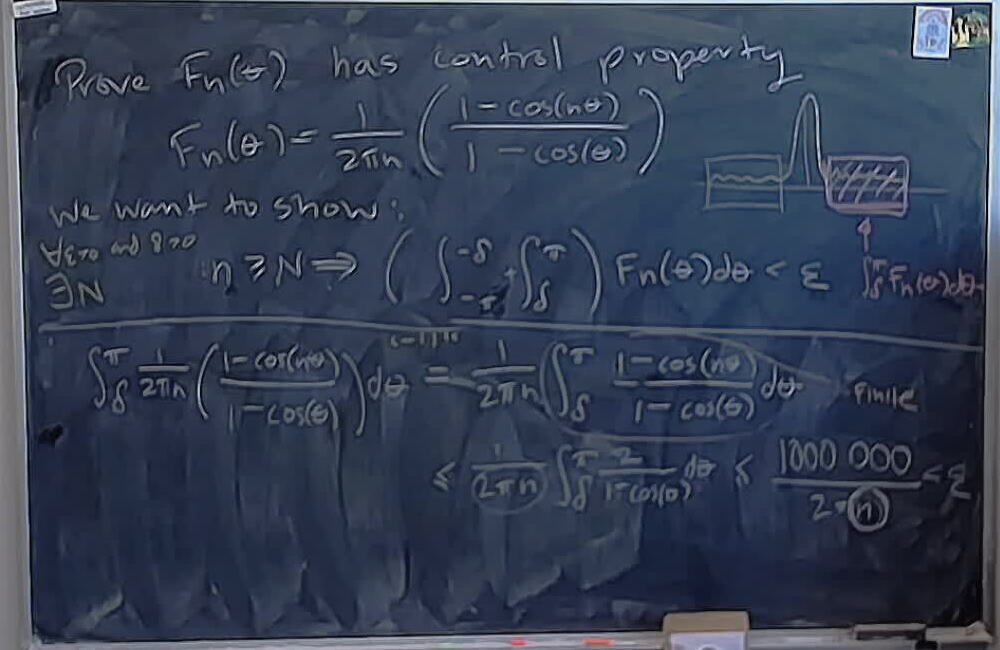 Prove Fn(θ) has control property
Fn(θ) = 1/2πn ( 1 - cos(nθ) / 1 - cos(θ) )
We want to show:
∀ε>0 and δ>0
∃N : n ≥ N ⟹ ( ∫_{-π}^{-δ} + ∫_δ^π ) Fn(θ)dθ < ε
∫_δ^π Fn(θ)dθ
∫_δ^π 1/2πn ( 1 - cos(nθ) / 1 - cos(θ) ) dθ = 1/2πn ∫_δ^π 1 - cos(nθ) / 1 - cos(θ) dθ
Finite
≤ 1/2πn ∫_δ^π 2 / 1 - cos(θ) dθ ≤ 1000 000 / 2·n < ε